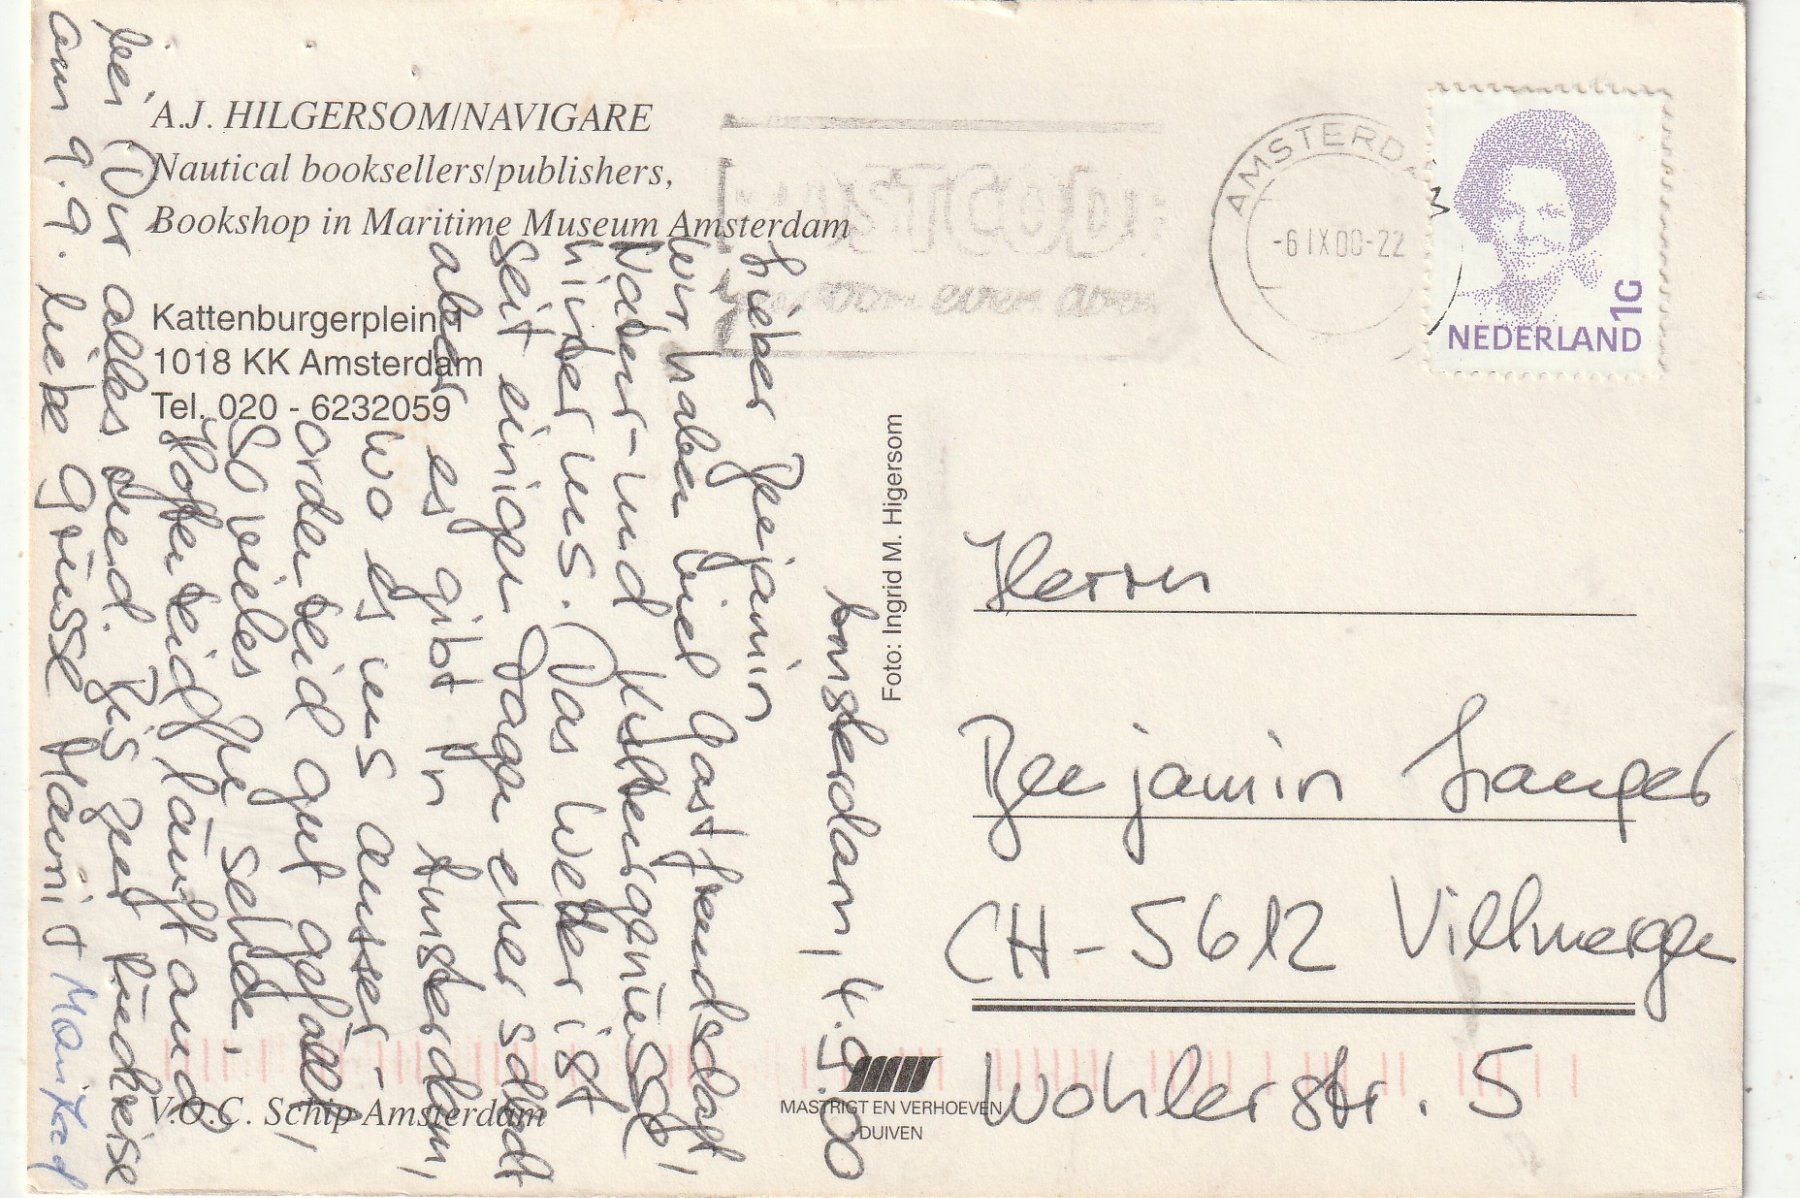 A.J. HILGERSOM/NAVIGARE
Nautical booksellers/publishers,
Bookshop in Maritime Museum Amsterdam
Kattenburgerplein 1
1018 KK Amsterdam
Tel. 020 - 6232059
V.O.C. Schip Amsterdam
Foto: Ingrid M. Higersom
MASTRIGT EN VERHOEVEN
DUIVEN
AMSTERDAM
-6 IX 00-22
POSTCODE
NEDERLAND
1G
Amsterdam, 4.9.00
Lieber Benjamin
Wir haben viel Gastfreundschaft,
Natur- und Kulturgenüsse
hinter uns. Das Wetter ist
seit einigen Tagen eher schlecht
aber es gibt in Amsterdam,
wo es uns ausser-
ordentlich gut gefällt,
so vieles zu sehen.
Hoffentlich läuft auch
bei Dir alles rund. Bis zur Rückreise
am 9.9. liebe Grüsse
Manfred
Herrn
Benjamin
CH-5612 Villmergen
Wohlerstr. 5